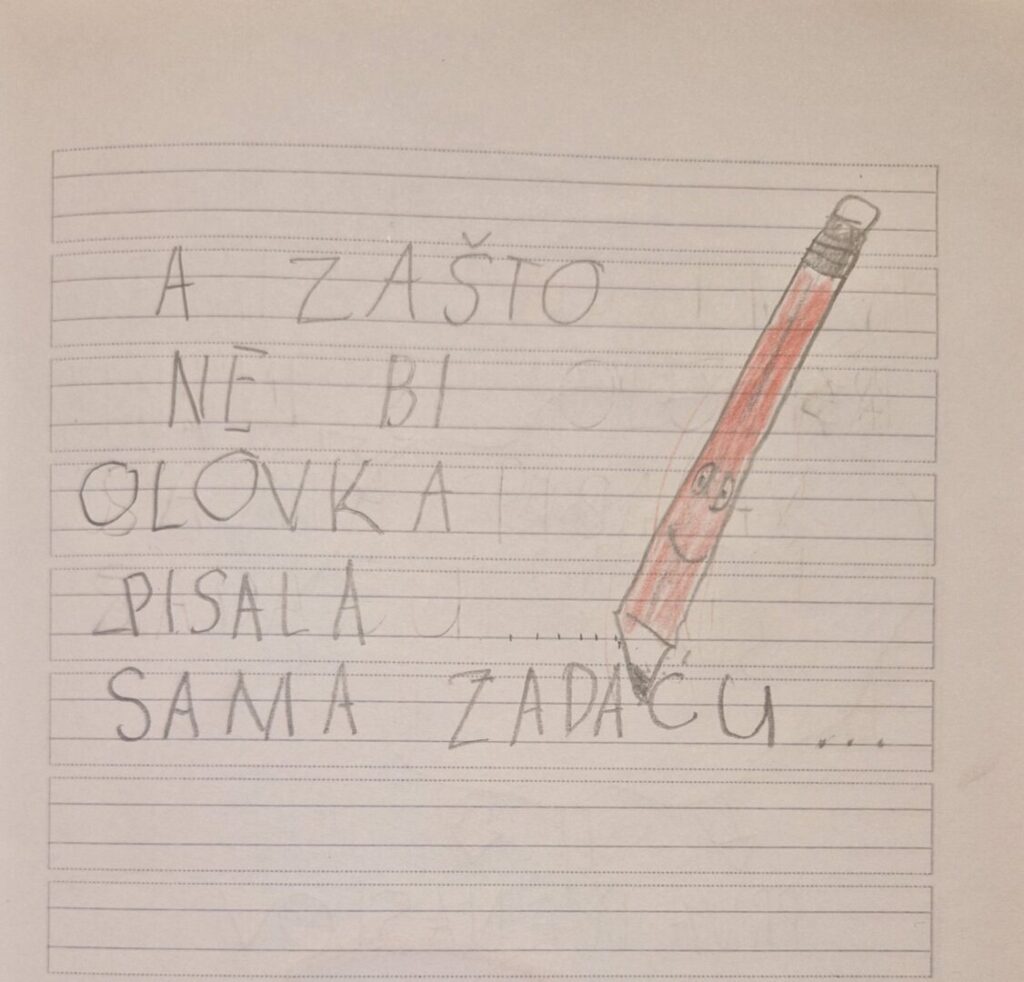 A ZAŠTO
NE BI
OLOVKA
PISALA ......
SAMA ZADAĆU...